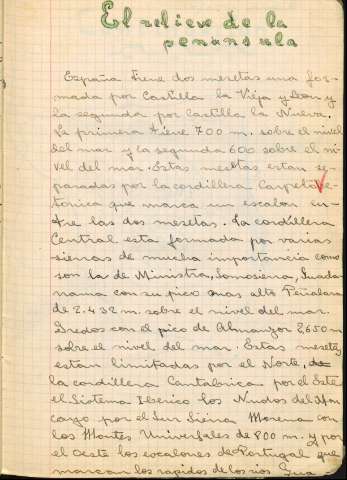 El relieve de la
peninsula
España tiene dos mesetas una for-
mada por Castilla la Vieja y Leon y
la segunda por Castilla la Nueva.
La primera tiene 700 m. sobre el nivel
del mar y la segunda 600 sobre el ni-
vel del mar. Estas mesetas estan se-
paradas por la cordillera Carpeto-Ve-
tónica que marca un escalon en-
tre las dos mesetas. La cordillera
Central esta formada por varias
sierras de mucha importancia como
son la de Ministra, Somosierra, Guada-
rrama con su pico mas alto Peñalara
de 2.432 m. sobre el nivel del mar.
Gredos con el pico de Almanzor 2650 m
sobre el nivel del mar. Estas mesetas
estan limitadas por el Norte, de
la cordillera Cantabrica por el Este
el Sistema Iberico los Nudos del Mon-
cayo por el Sur Sierra Morena con
los Montes Universales de 800 m. y por
el Oeste los escalones de Portugal que
marcan los rapidos de los rios. Gua